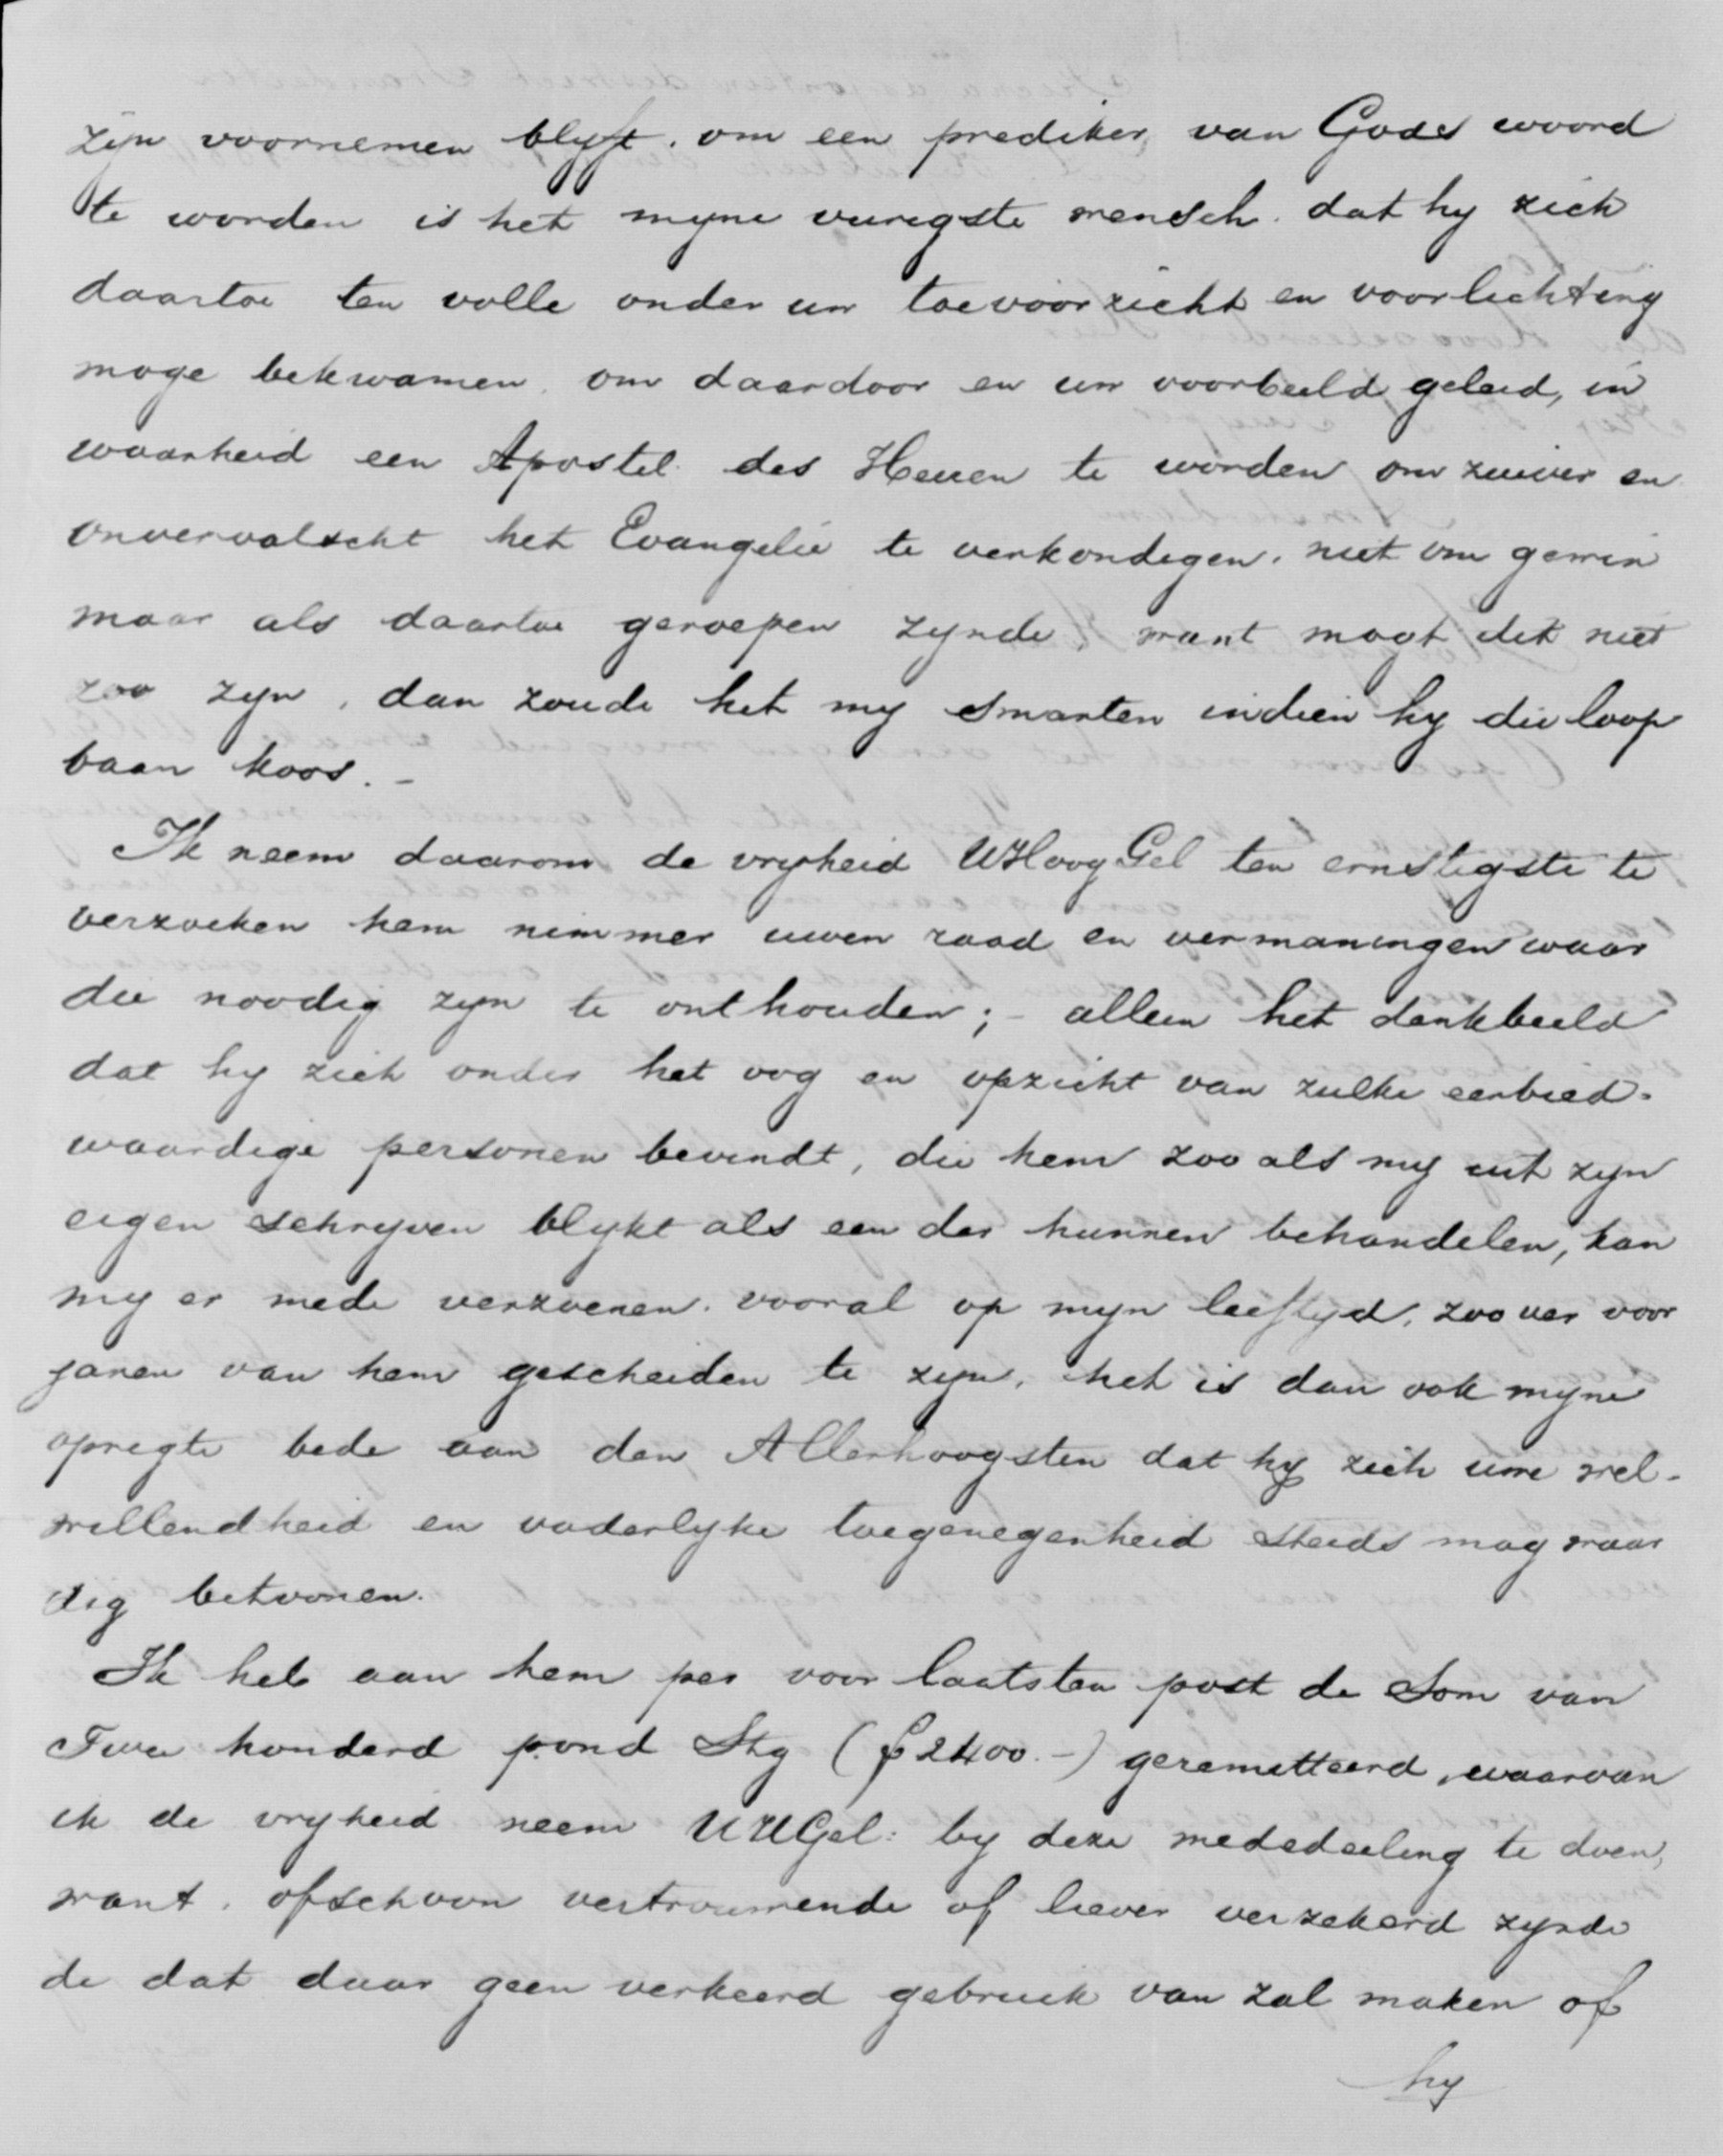 zyn voornemen blyft. om een prediker, van Gods woord
te worden is het myne vurigste wensch. dat hy zich
daartoe ten volle onder uw toevoorzicht en voorlichting
moge bekwamen. om daardoor en uw voorbeeld geleid, in
waarheid een Apostel des Heeren te worden om zuiver en
onvervalscht het Evangelie te verkondigen. niet om gewin
maar als daartoe geroepen zynde, want mogt dit niet
zoo zyn, dan zoude het my smarten indien hy die loop
baan koos. -
Ik neem daarom de vryheid UHoogGel ten ernstigste te
verzoeken hem nimmer uwen raad en vermaningen waar
die noodig zyn te onthouden; - alleen het denkbeeld
dat hy zich onder het oog en opzicht van zulke eerbied-
waardige personen bevindt, die hem zoo als my uit zyn
eigen schryven blykt als een der hunnen behandelen, kan
my er mede verzoenen. vooral op myn leeftyd. zoo ver voor
jaren van hem gescheiden te zyn. het is dan ook myne
opregte bede aan den Allerhoogsten dat hy zich uwe wel-
willendheid en vaderlyke toegenegenheid steeds mag waar
dig betoonen.
Ik heb aan hem per voor laatsten post de som van
Twee honderd pond Stg (ƒ2400.-) geremitteerd, waarvan
ik de vryheid neem UHGel: by deze mededeeling te doen,
want. ofschoon vertrouwende of liever verzekerd zynde
de dat daar geen verkeerd gebruik van zal maken of
hy